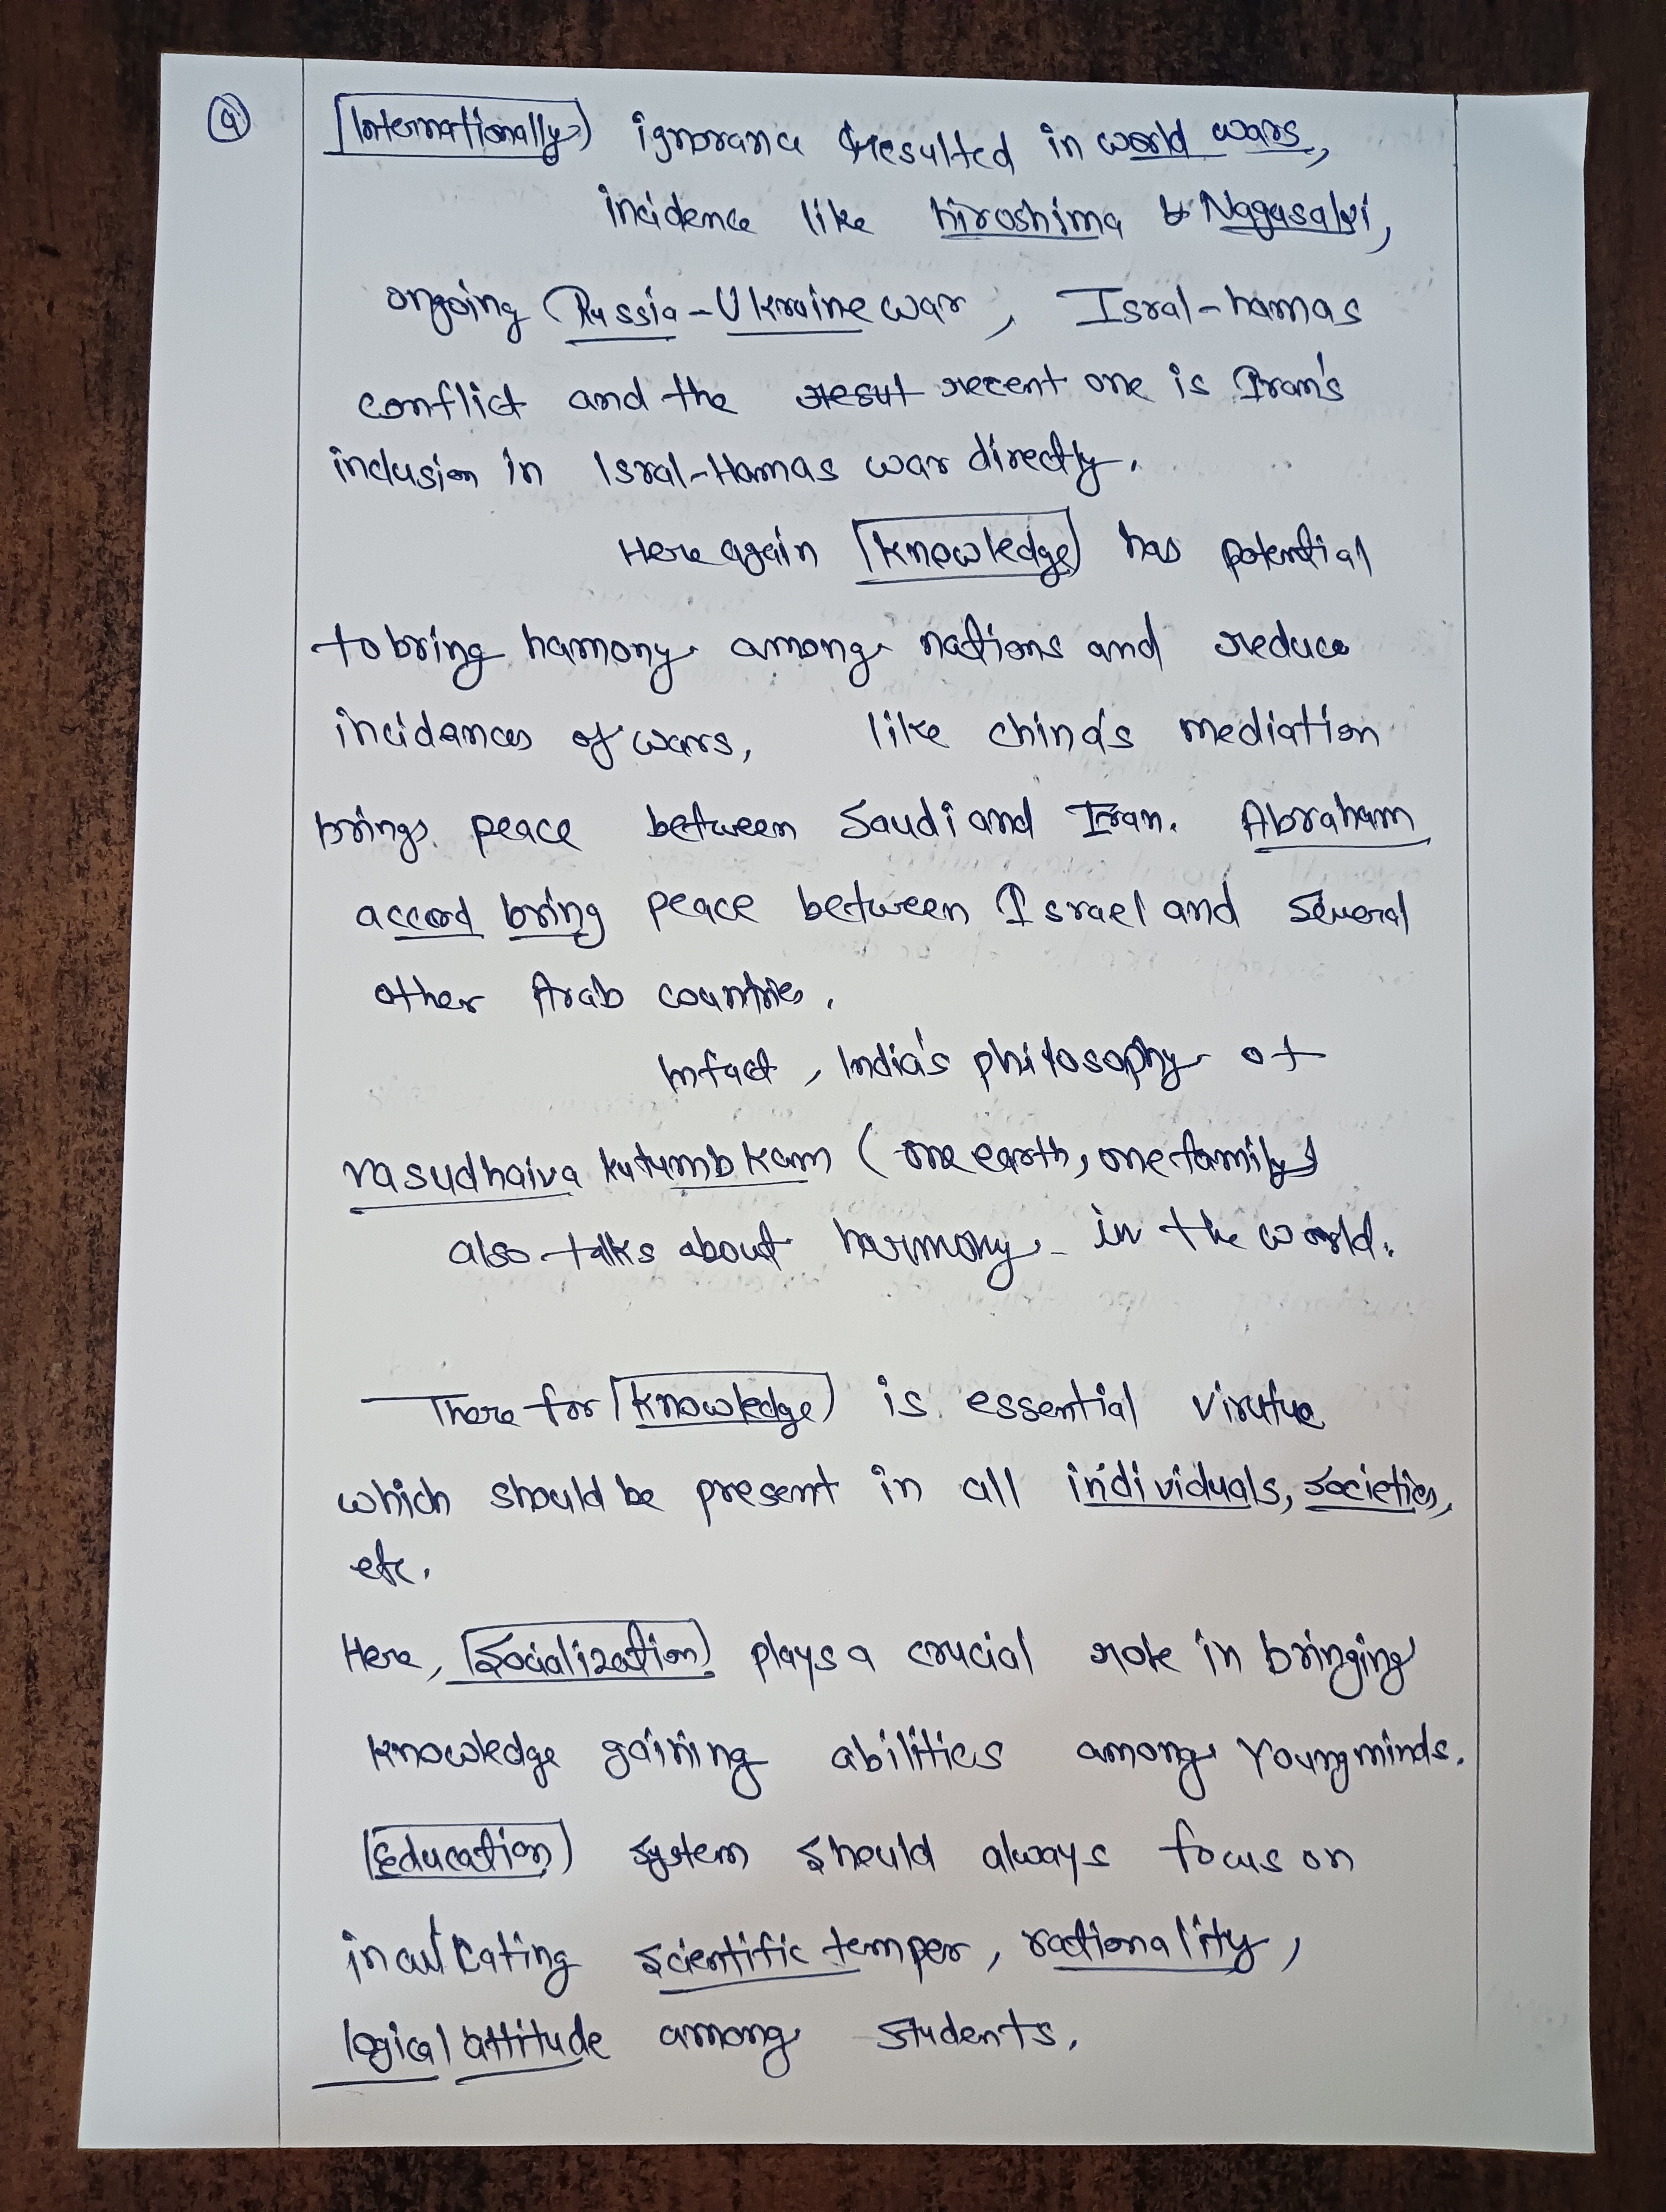 9
Internationally ignorance resulted in world wars,
incidence like hiroshima & Nagasaki,
ongoing Russia-Ukraine war, Isral-hamas
conflict and the resut recent one is Iran's
inclusion in Isral-Hamas war directly.
Here again Knowledge has potential
to bring hamony among nations and reduce
incidances of wars, like china's mediation
brings peace between Saudi and Iran. Abraham
accord bring peace between Israel and several
other Arab countries.
Infact, India's philosophy of
vasudhaiva kutumbkam (one earth, one family)
also talks about harmony in the world.
There for Knowledge is essential virutue
which should be present in all individuals, societies,
etc.
Here, Socialization plays a crucial role in bringing
knowledge gaining abilities among young minds.
Education system should always focus on
inculcating scientific temper, rationality,
logical attitude among students.